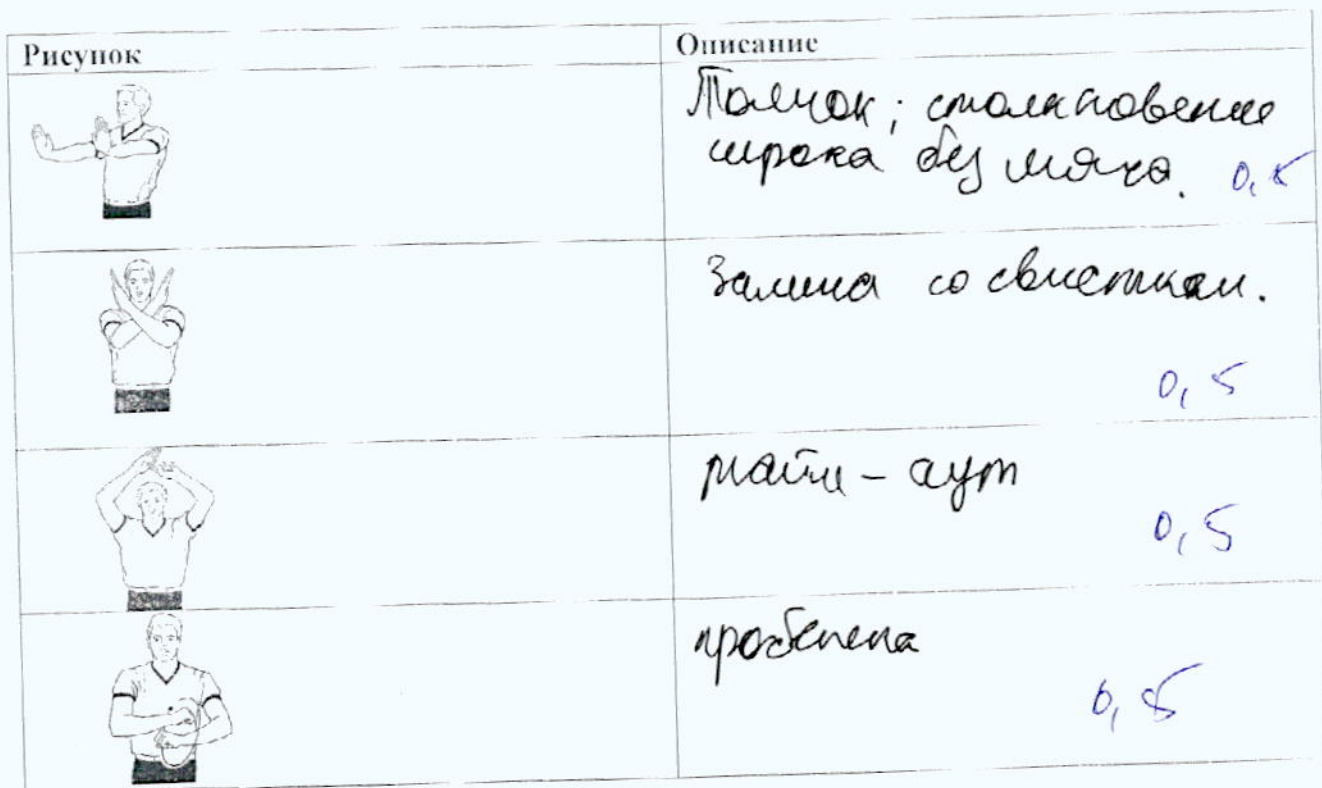 Рисунок
Описание
Толчок; столкновение
игрока без мяча. 0,5
Замена со свистком.
0,5
тайм-аут
0,5
0,5